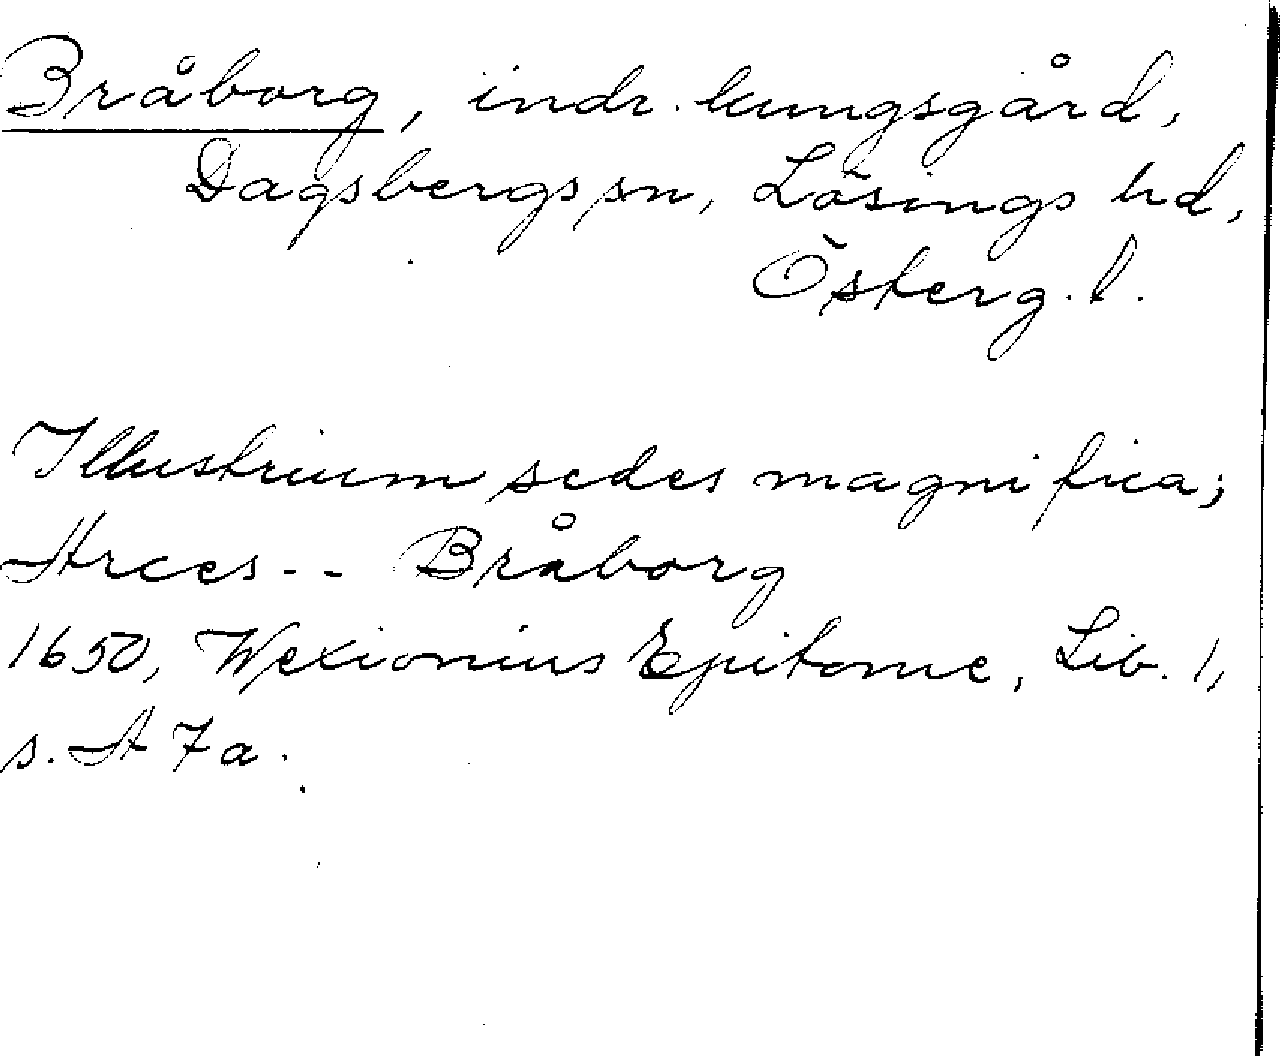 Bråborg, indr. kungsgård,
Dagsbergs sn, Lösings hd,
Österg. l.
Illustrium sedes magnifica;
Arces - - Bråborg
1650, Wexionius Epitome, Lib. 1,
s. A 7a.